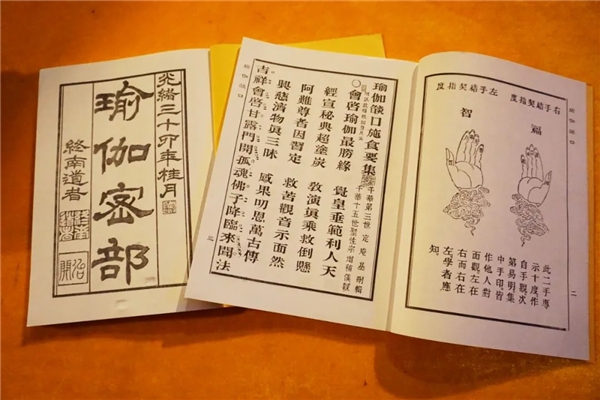 光緒三十卯年桂月
瑜伽密部
終南道者
瑜伽燄口施食要集
千華第三世 定庵基 刪輯
會啓瑜伽最勝緣 覺皇垂範利人天
經宣秘典超塗炭 教演眞乘救倒懸
阿難尊者因習定 救苦觀音示面然
興慈濟物眞三昧 感果叨恩萬古傳
吉祥會啓甘露門開孤魂佛子降臨來聞法
三
瑜伽燄口
二
右手結契指度
左手結契指度
福
智
此二手專
示十度作
自手觀次
第易明集
中手印皆
作他人對
面觀左在
右而右在
左學者應
知